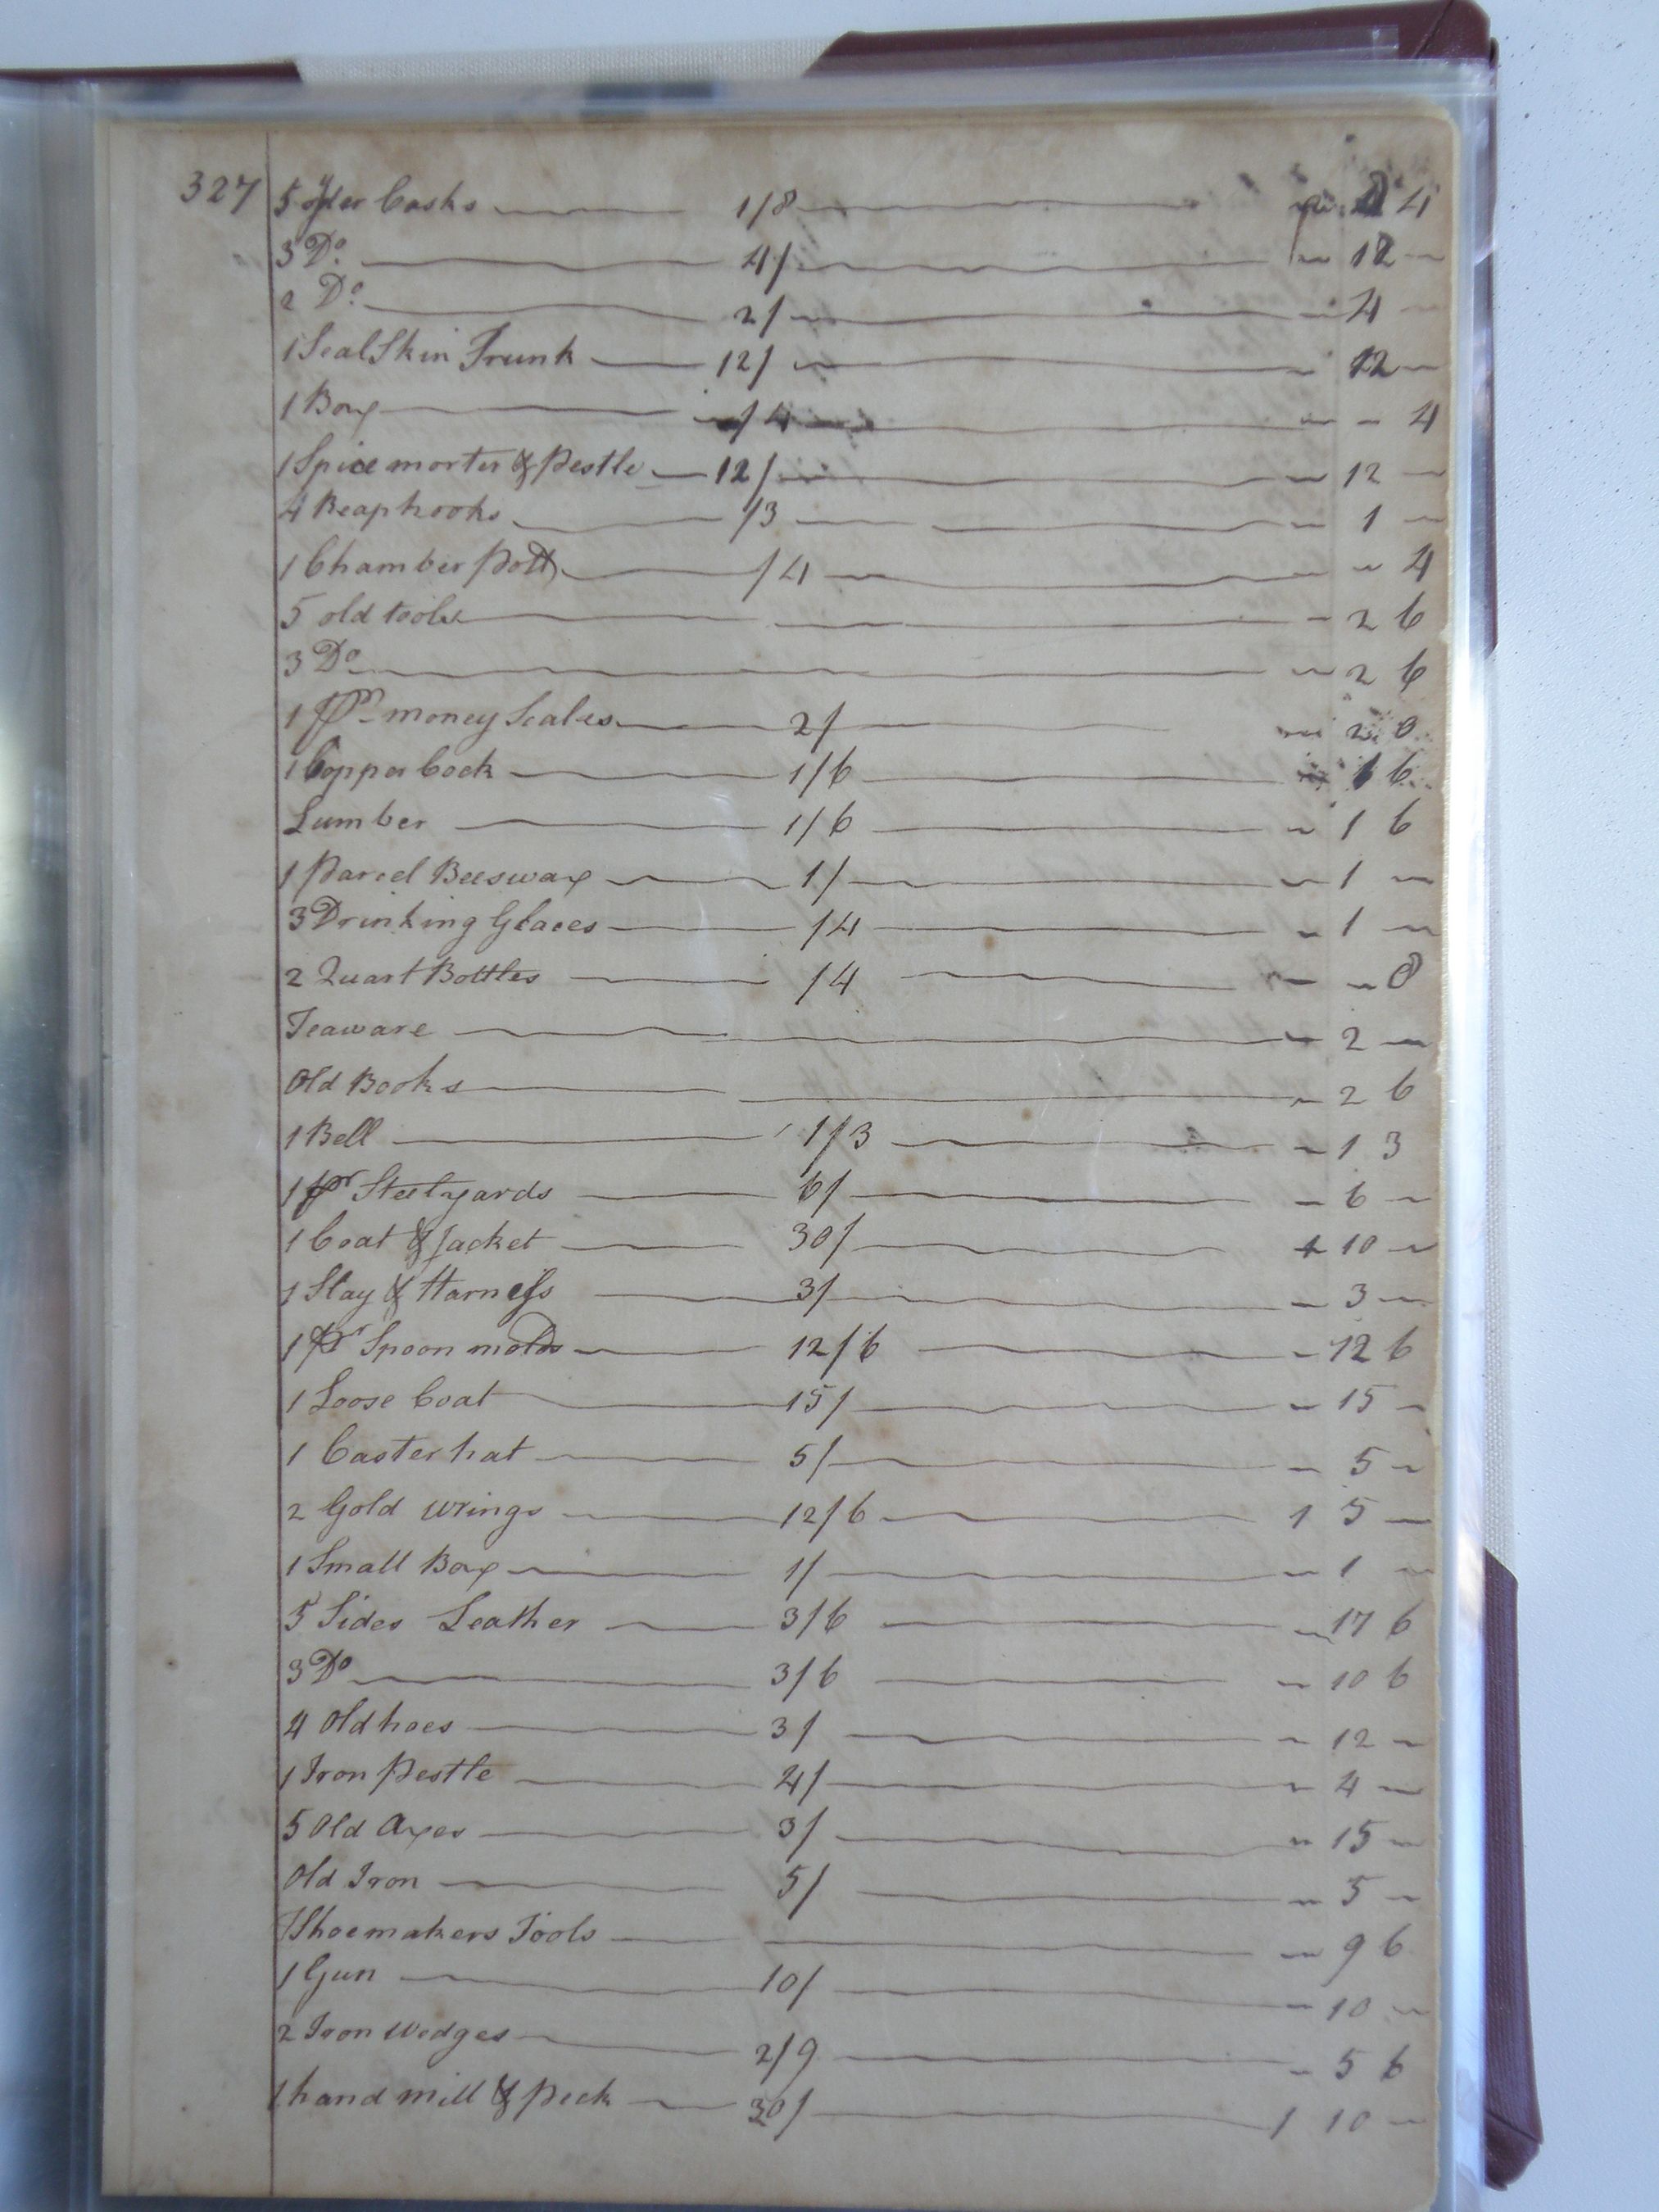 327 5 Cyder Casks 1/8 8 4
3 Do 4/ 12
2 Do 2/ 4
1 Seal Skin Trunk 12/ 12
1 Box /4 4
1 Spice morter & Pestle 12/ 12
4 Reaphooks /3 1
1 Chamber Pott /4 4
5 old tools 2 6
3 Do 2 6
1 Pr money Scales 2/ 2 0
1 Copper Cock 1/6 1 6
Lumber 1/6 1 6
1 Parcel Beeswax 1/ 1
3 Drinking Glaces /4 1
2 Quart Bottles /4 8
Teaware 2
Old Books 2 6
1 Bell 1/3 1 3
1 pr Steelyards 6/ 6
1 Coat & Jacket 30/ 1 10
1 Slay & Harness 3/ 3
1 Pr Spoon molds 12/6 12 6
1 Loose Coat 15/ 15
1 Caster hat 5/ 5
2 Gold wrings 12/6 1 5
1 Small Box 1/ 1
5 Sides Leather 3/6 17 6
3 Do 3/6 10 6
4 Old hoes 3/ 12
1 Iron Pestle 4/ 4
5 Old Axes 3/ 15
Old Iron 5/ 5
Shoemakers Tools 9 6
1 Gun 10/ 10
2 Iron Wedges 2/9 5 6
1 hand mill & Peck 30/ 1 10